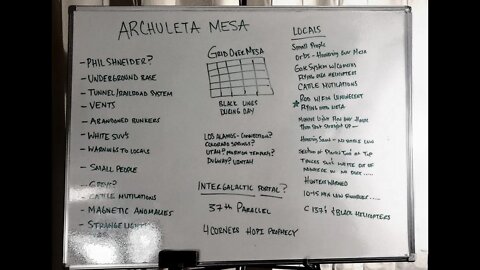 ARCHULETA MESA
- PHIL SHNEIDER?
- UNDERGROUND BASE
- TUNNEL/RAILROAD SYSTEM
- VENTS
- ABANDONED BUNKERS
- WHITE SUV'S
- WARNINGS TO LOCALS
- SMALL PEOPLE
- GREYS?
- CATTLE MUTILATIONS
- MAGNETIC ANOMALIES
- STRANGE LIGHTS
GRID OVER MESA
BLACK LINES
DURING DAY
LOS ALAMOS - CONNECTION?
COLORADO SPRINGS?
UTAH? MORMON TEMPLES?
DUGWAY? UINTAH
INTERGALACTIC PORTAL?
37th PARALLEL
4 CORNERS HOPI PROPHECY
LOCALS
SMALL PEOPLE
ORBS - HOVERING OVER MESA
FLYING HELICOPTERS
CATTLE MUTILATIONS
FLYING INTO MESA
HOUSE
THEN SHOT STRAIGHT UP -
TRUCKS SUV'S WHITE OUT OF
NOWHERE
HUNTERS WARNED
10-15 MEN
C 137'S & BLACK HELICOPTERS